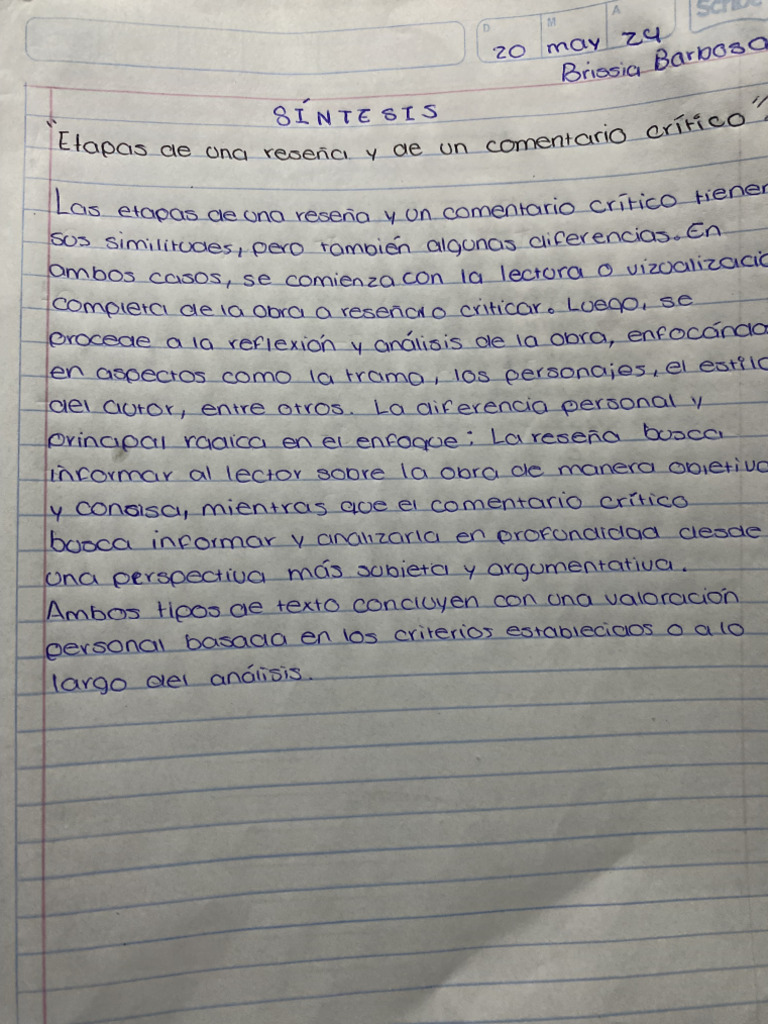 D M A
20 may 24
Brissia Barbosa
SÍNTESIS
"Etapas de una reseña y de un comentario crítico".
Las etapas de una reseña y un comentario crítico tienen
sus similitudes, pero también algunas diferencias. En
ambos casos, se comienza con la lectura o vizualizació
completa de la obra a reseña o criticar. Luego, se
procede a la reflexión y análisis de la obra, enfocánda
en aspectos como la trama, los personajes, el estilo
del autor, entre otros. La diferencia personal y
principal radica en el enfoque: La reseña busca
informar al lector sobre la obra de manera objetiva
y consisa, mientras que el comentario crítico
busca informar y analizarla en profundidad desde
una perspectiva más subjeta y argumentativa.
Ambos tipos de texto concluyen con una valoración
personal basada en los criterios establecidos o a lo
largo del análisis.